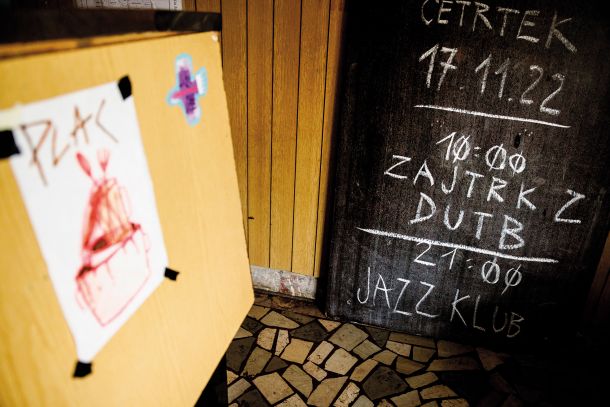 PLAC
ČETRTEK
17.11.22
10:00
ZAJTRK Z
DUTB
21:00
JAZZ KLUB